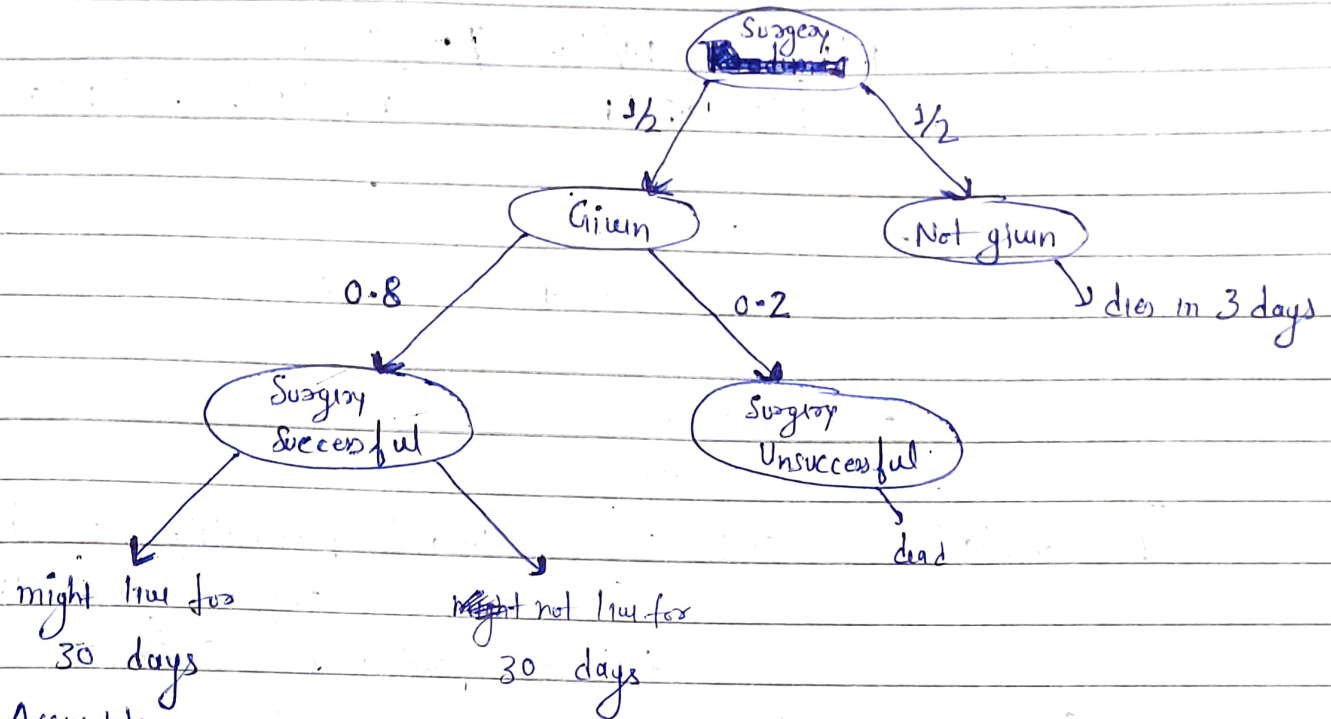 Surgery
1/2
1/2
Given
Not given
0.8
0.2
dies in 3 days
Surgery
Successful
Surgery
Unsuccessful
dead
might live for
30 days
not live for
30 days